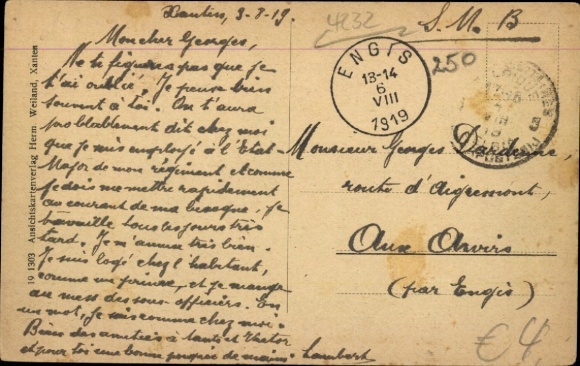 Xanten, 3-8-19.
Mon cher Georges,
Ne te figures pas que je
t'ai oublié. Je pense bien
souvent à toi. On t'aura
probablement dit chez moi
que je suis employé à l'Etat-
Major de mon régiment et comme
je dois me mettre rapidement
au courant de ma besogne, je
travaille tous les jours très
tard. Je m'amuse très bien.
Je suis logé chez l'habitant,
comme un prince, et je mange
au mess des sous officiers. En
un mot, je suis comme chez moi.
Bien des amitiés à tante et Victor
et pour toi une bonne poignée de mains. Lambert
19 1303 Ansichtskartenverlag Herm Weiland, Xanten
4232
S. M. B
250
ENGIS
13-14
6
VIII
1919
Monsieur Georges Dardenne,
route d'Aigremont,
Aux Awirs
(par Engis)
€4